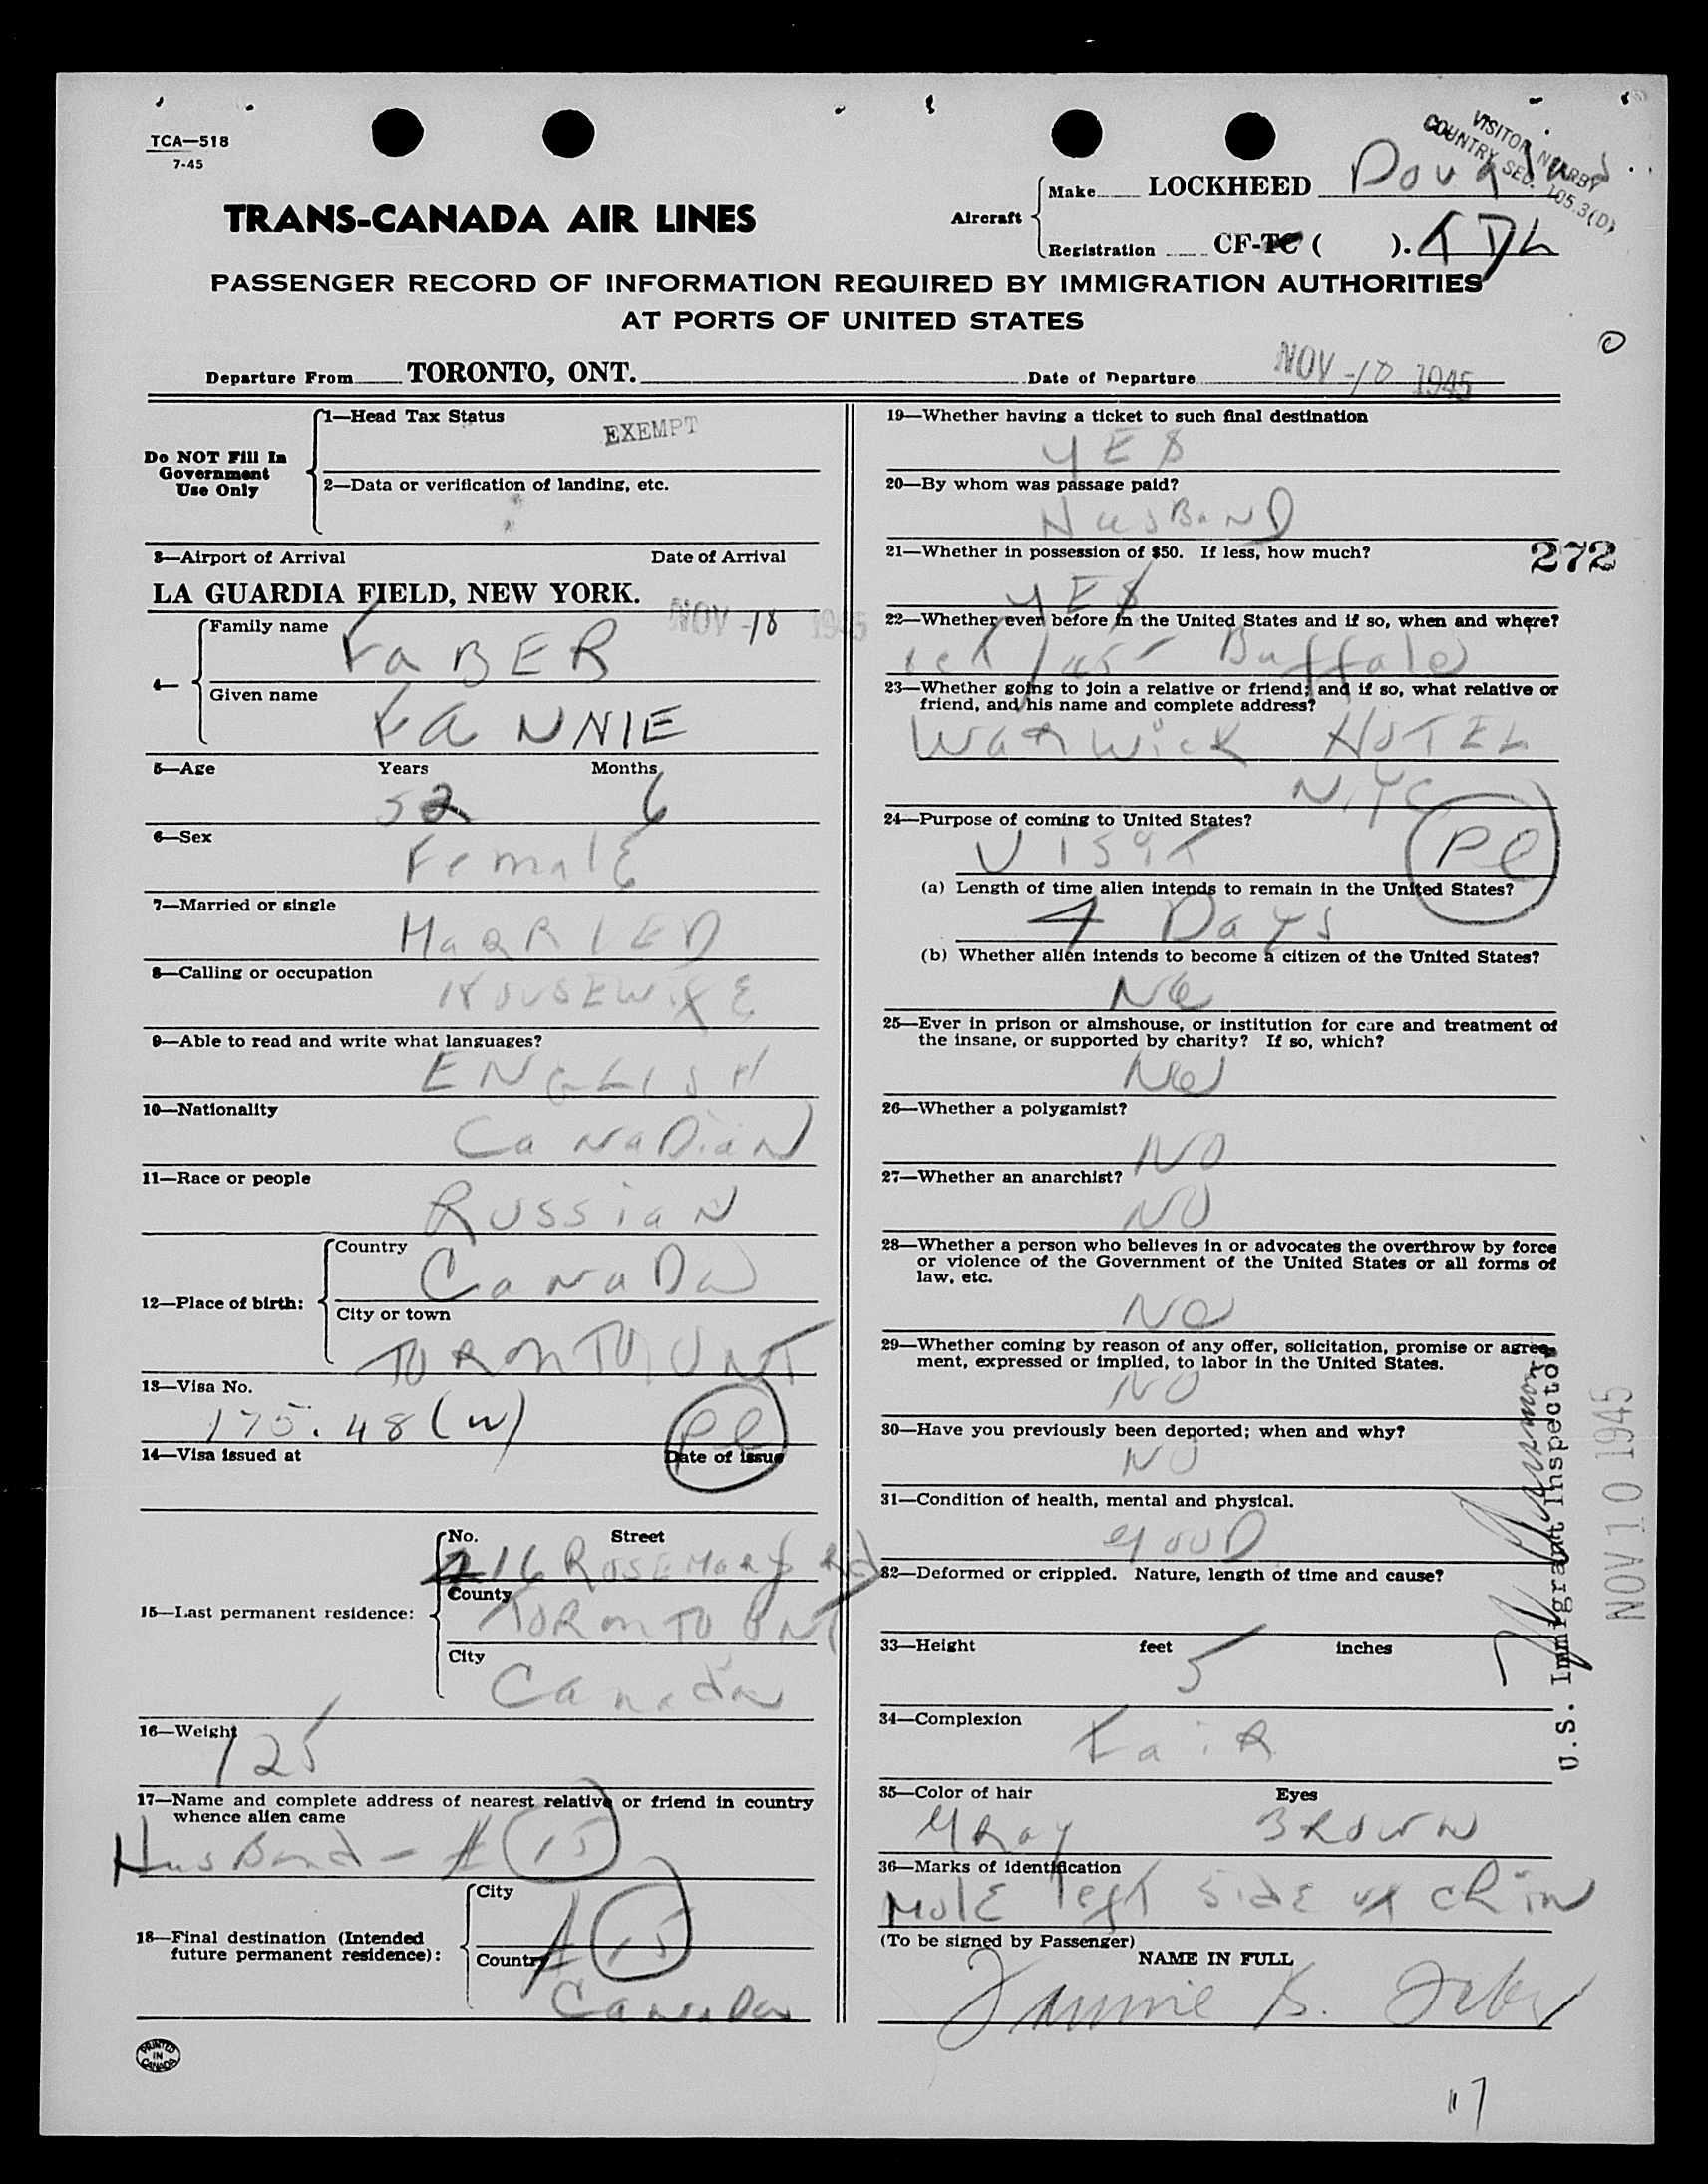 TCA—518
7-45
VISITOR NEARBY
COUNTRY SEC. 105.3(D)
TRANS-CANADA AIR LINES
Aircraft
Make LOCKHEED Douglas
Registration CF-TC ( ).
PASSENGER RECORD OF INFORMATION REQUIRED BY IMMIGRATION AUTHORITIES
AT PORTS OF UNITED STATES
Departure From TORONTO, ONT. Date of Departure NOV -10 1945
Do NOT Fill In
Government
Use Only
1—Head Tax Status
EXEMPT
2—Data or verification of landing, etc.
3—Airport of Arrival Date of Arrival
LA GUARDIA FIELD, NEW YORK. NOV -10 1945
4—
Family name
FaBER
Given name
FaNNIE
5—Age Years Months
52 6
6—Sex
FemalE
7—Married or single
MaRRIED
8—Calling or occupation
HOUSEWIFE
9—Able to read and write what languages?
ENGLISH
10—Nationality
CaNaDiaN
11—Race or people
RUSSiaN
12—Place of birth:
Country
CaNaDa
City or town
TORONTO ONT
13—Visa No.
175.48(w)
Pl
14—Visa issued at Date of issue
15—Last permanent residence:
No. Street
216 ROSEMARY Rd
County
TORONTO ONT
City
Canada
16—Weight
125
17—Name and complete address of nearest relative or friend in country
whence alien came
HusBand - # 15
18—Final destination (Intended
future permanent residence):
City
# 15
Country
CanaDa
19—Whether having a ticket to such final destination
YES
20—By whom was passage paid?
HusBaND
272
21—Whether in possession of $50. If less, how much?
YES
22—Whether ever before in the United States and if so, when and where?
Oct /45 Buffalo
23—Whether going to join a relative or friend; and if so, what relative or
friend, and his name and complete address?
WaRWicK HOTEL
NYC
24—Purpose of coming to United States?
VISIT
Pl
(a) Length of time alien intends to remain in the United States?
4 Days
(b) Whether alien intends to become a citizen of the United States?
No
25—Ever in prison or almshouse, or institution for care and treatment of
the insane, or supported by charity? If so, which?
No
26—Whether a polygamist?
NO
27—Whether an anarchist?
NO
28—Whether a person who believes in or advocates the overthrow by force
or violence of the Government of the United States or all forms of
law, etc.
NO
29—Whether coming by reason of any offer, solicitation, promise or agree-
ment, expressed or implied, to labor in the United States.
NO
30—Have you previously been deported; when and why?
NO
31—Condition of health, mental and physical.
gooD
32—Deformed or crippled. Nature, length of time and cause?
33—Height feet inches
5
34—Complexion
FaiR
35—Color of hair Eyes
GRay BROWN
36—Marks of identification
MolE left SidE of chin
(To be signed by Passenger)
NAME IN FULL
Fannie S. Faber
U.S. Immigrant Inspector
NOV 10 1945
PRINTED
IN
CANADA